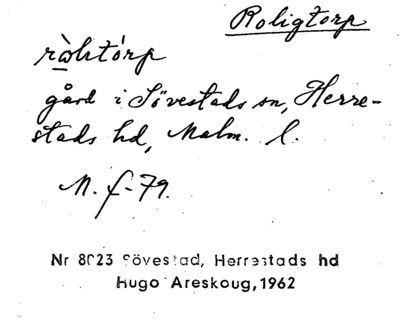 Roligtorp
ròlitórp
gård i Sövestads sn, Herre-
stads hd, Malm. l.
M. f-79.
Nr 8023 Sövestad, Herrestads hd
Hugo Areskoug, 1962